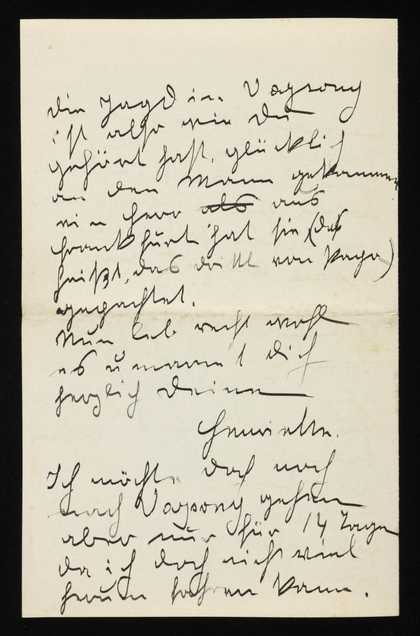 die Jagd in Vazsony
ist also wie Du
gehört hast, glücklich
an den Mann gekommen,
ein Herr als aus
Frankfurt hat sie (das
heißt, das drittl von Papa)
gepachtet.
Nun leb recht wohl
es umarmt dich
herzlich deine
Henriette.
Ich möchte doch noch
nach Vazsony gehen
aber nur für 14 Tage
da ich doch nicht viel
herum fahren kann.